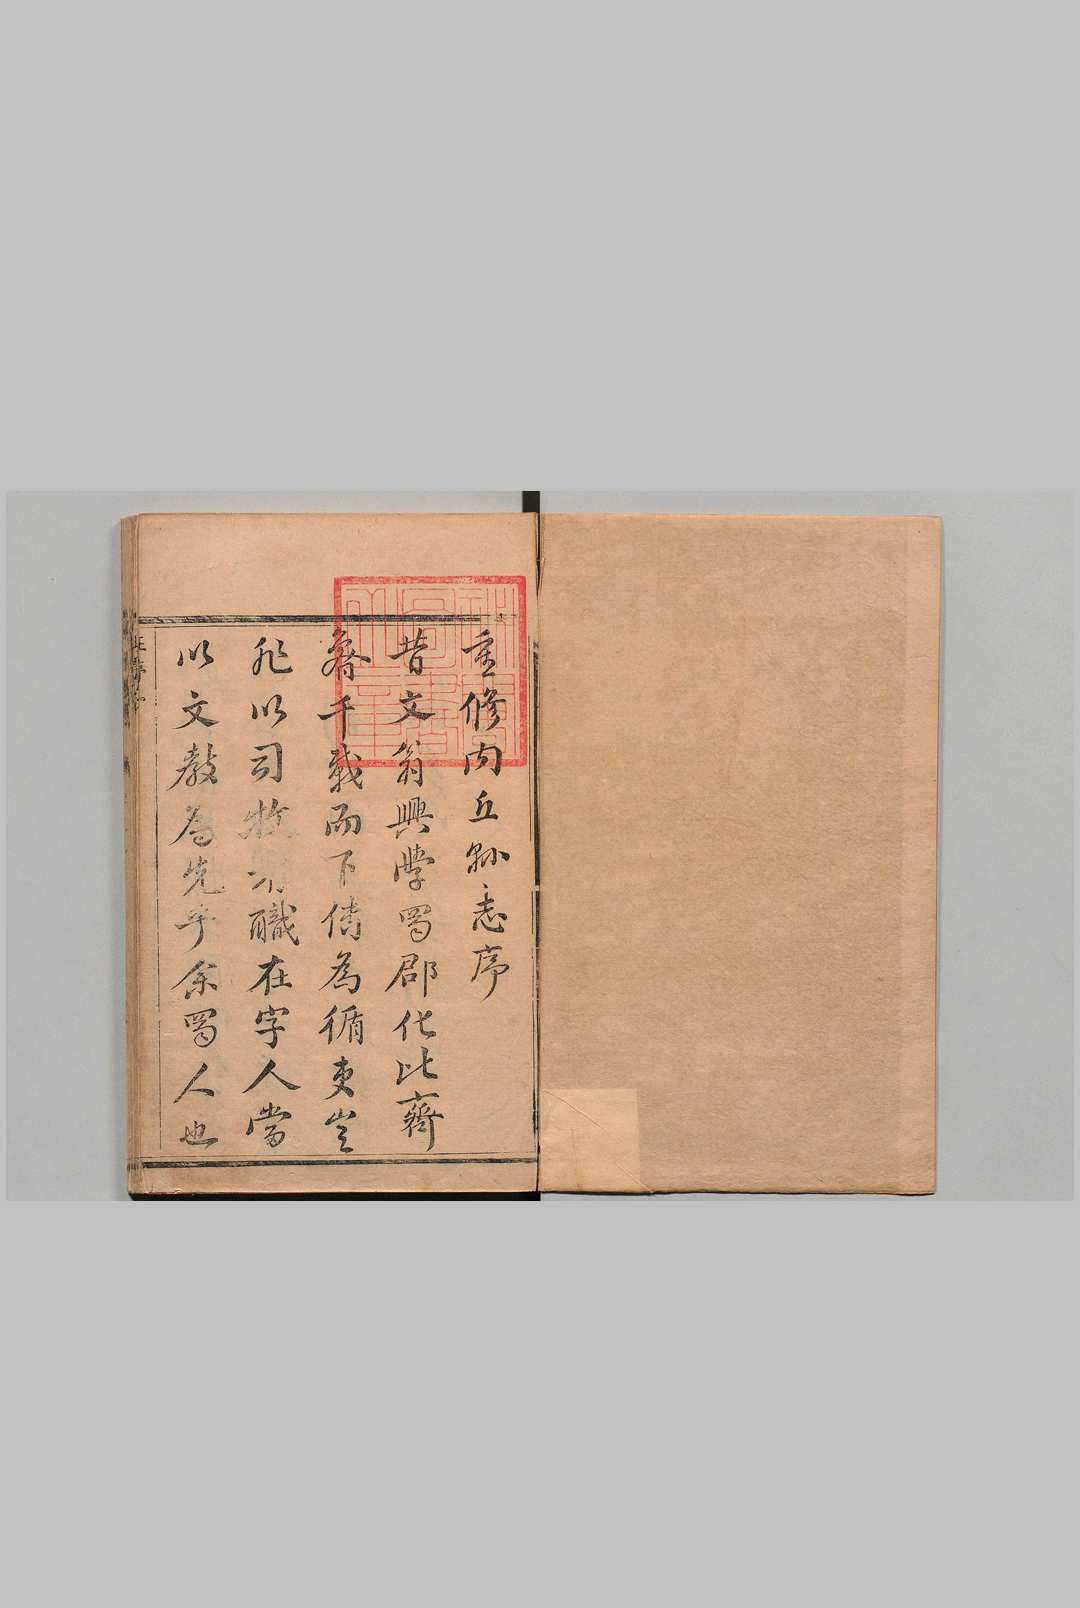 重修內丘縣志序
昔文翁興學蜀郡化比齊
魯千載而下傳為循吏豈
非以司牧者職在字人當
以文教為先乎余蜀人也